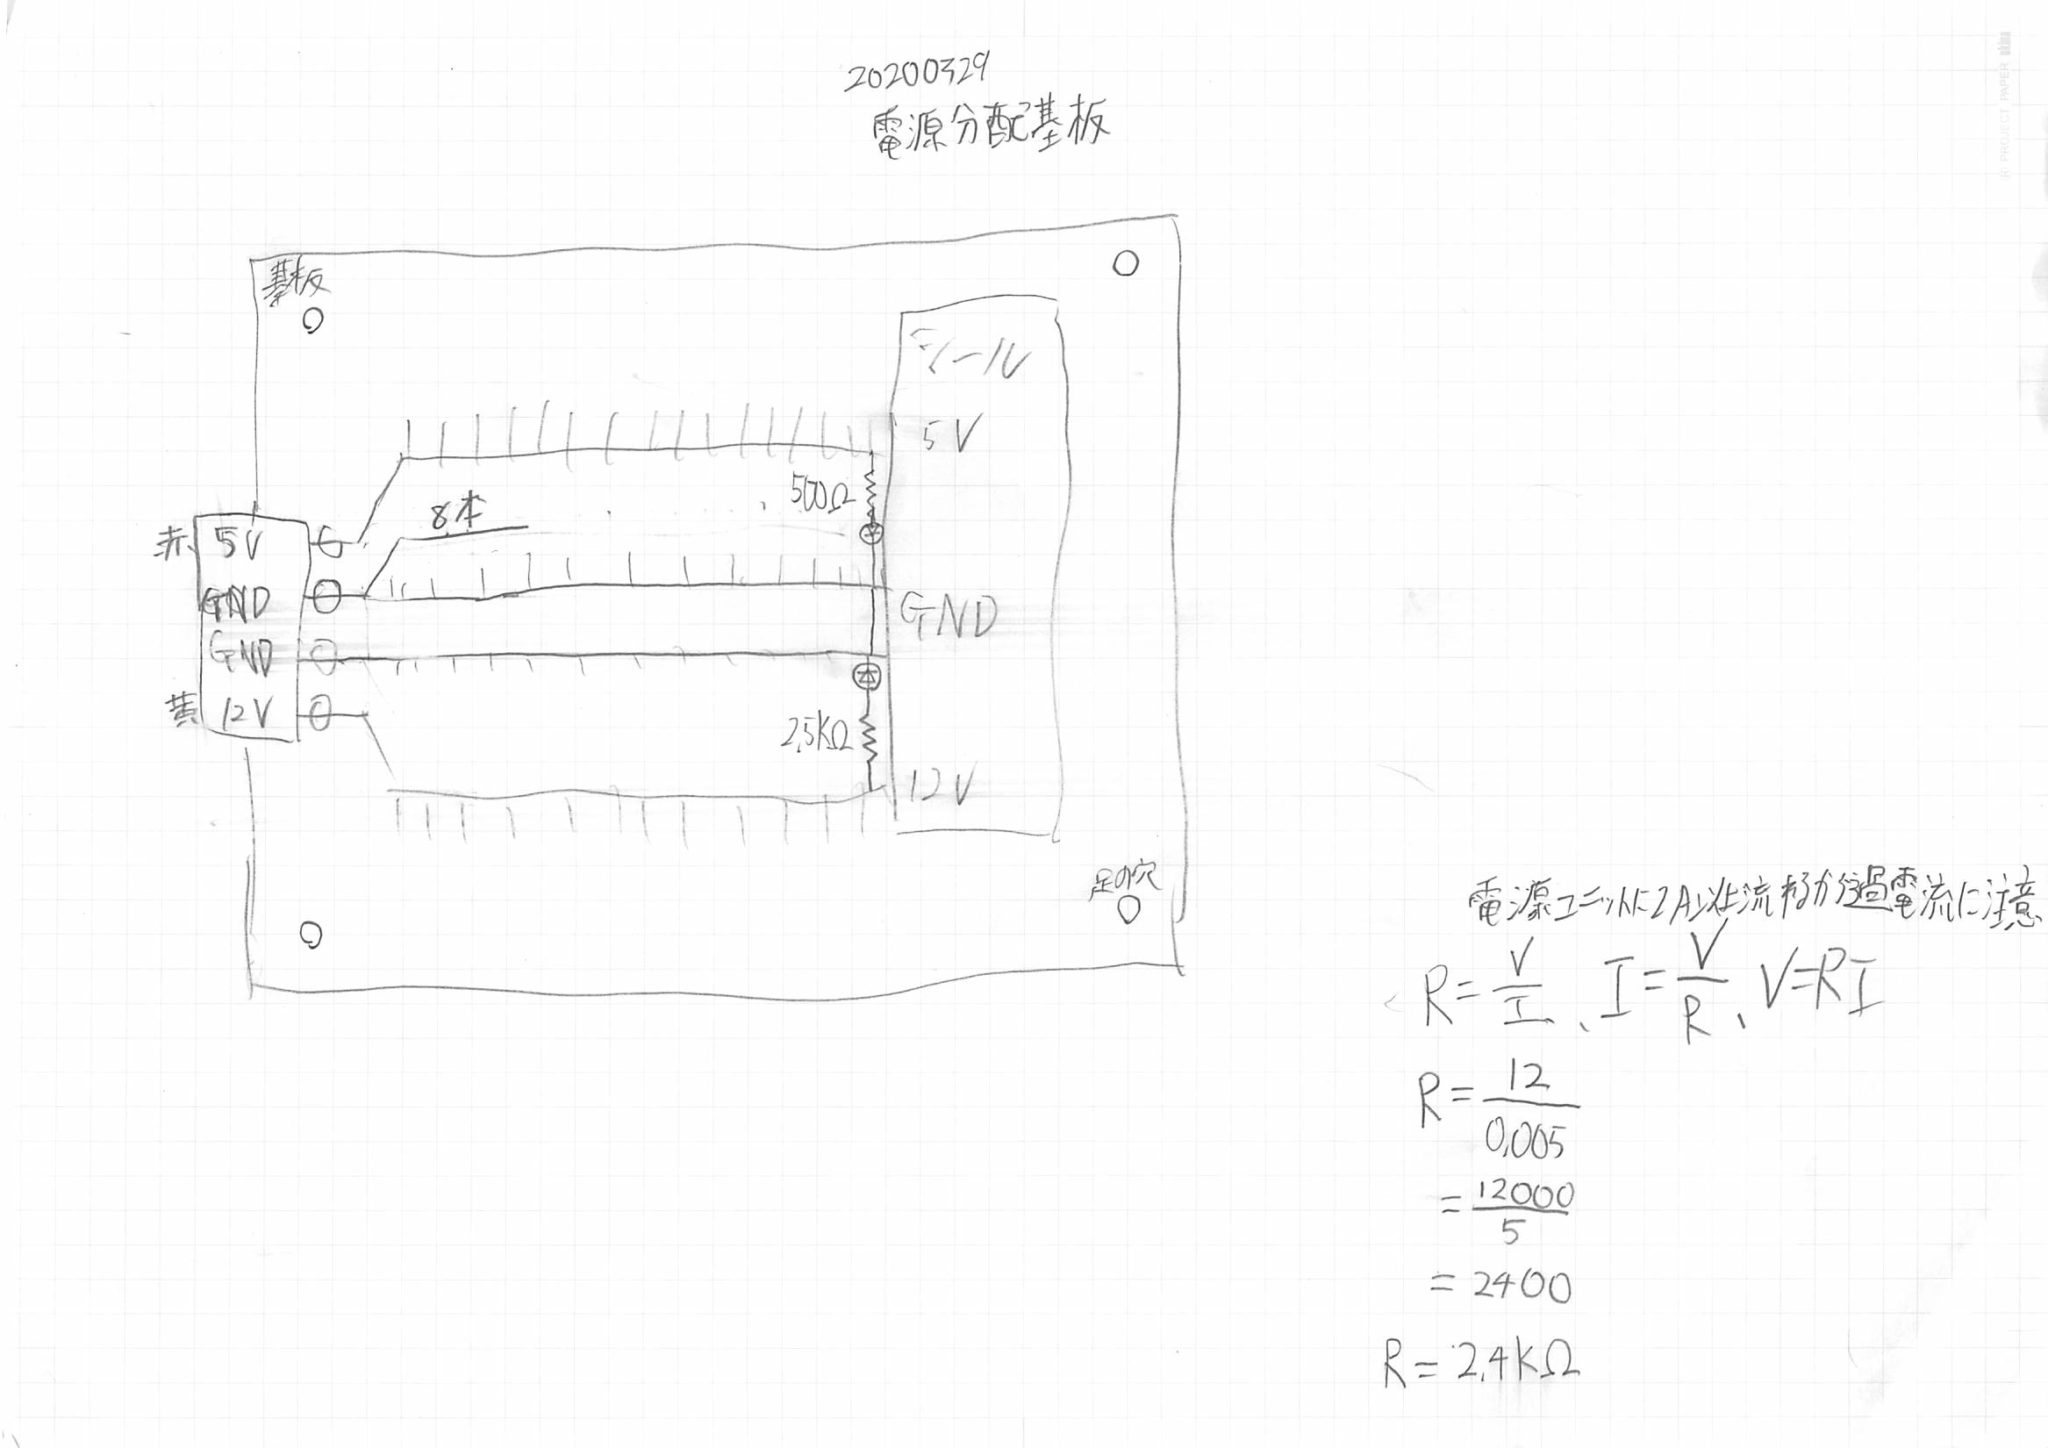 20200329
電源分配基板
基板
シール
5V
500Ω
8本
赤 5V
GND
GND
GND
黄 12V
2.5KΩ
12V
足の穴
電源ユニットに2A以上流れるから過電流に注意
R=V/I、I=V/R、V=RI
R=12/0.005
=12000/5
=2400
R=2.4KΩ
PROJECT PAPER